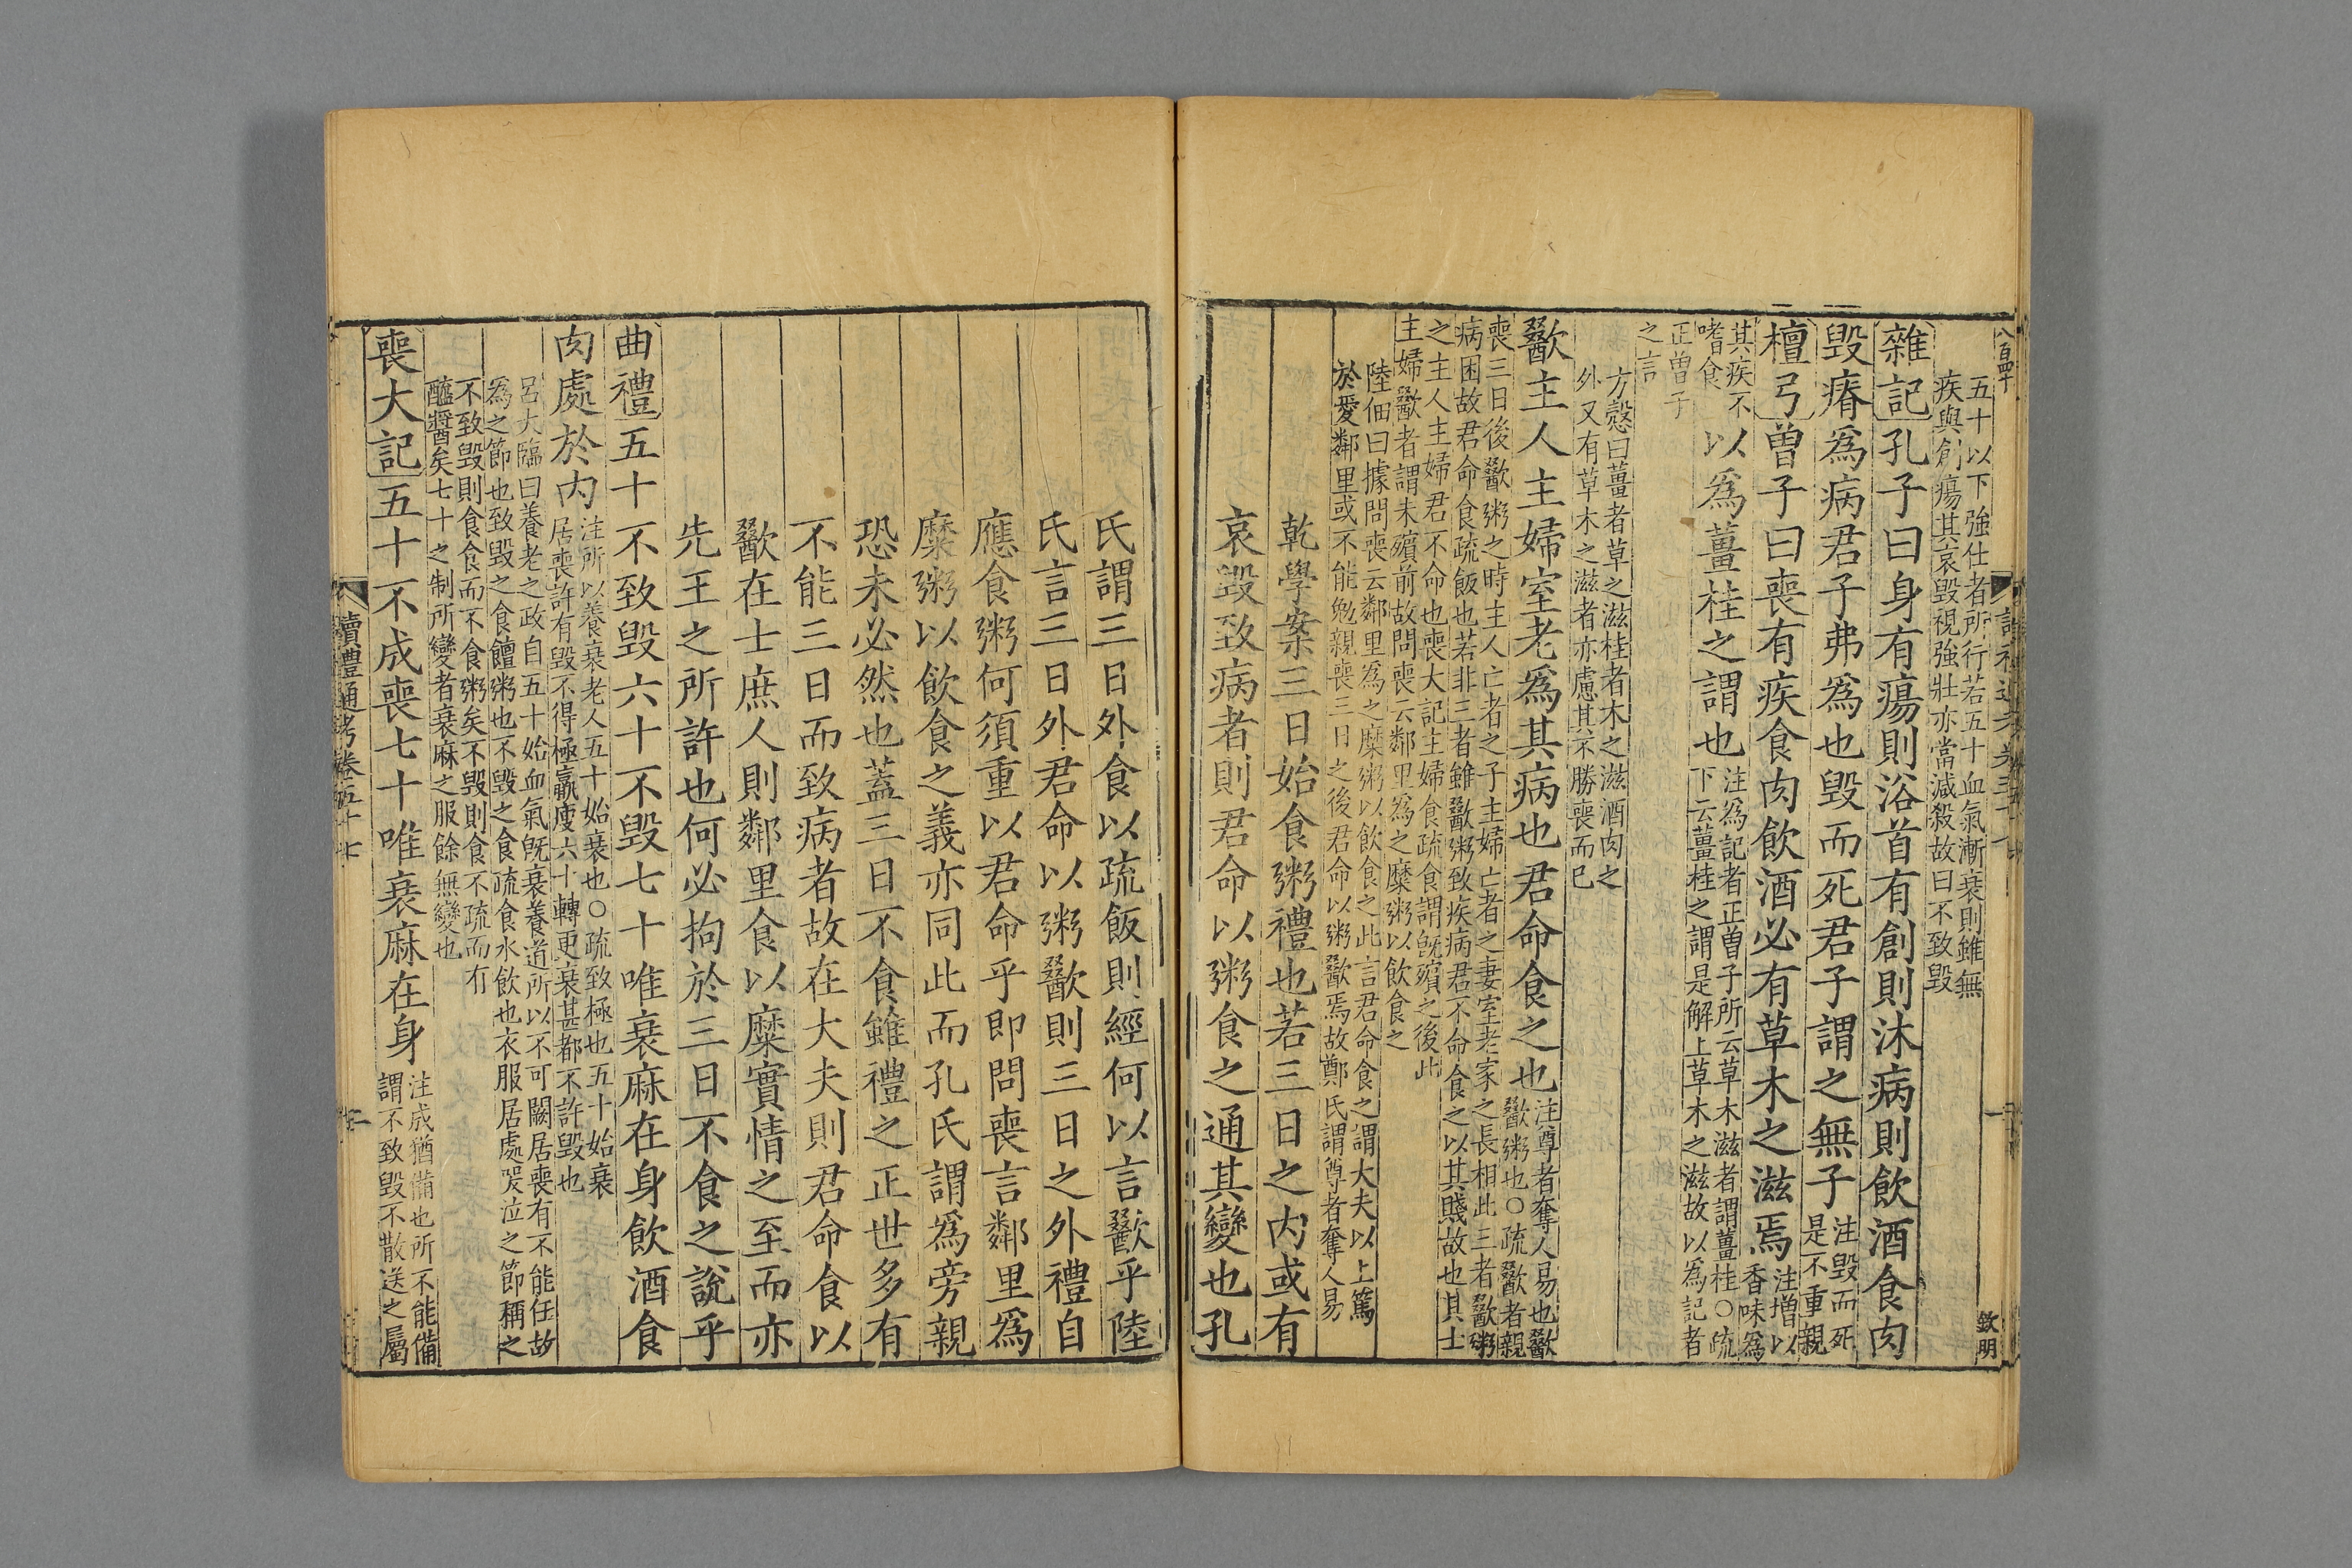 八百四十
欽明
五十以下強仕者所行若五十血氣漸衰則雖無
疾與創瘍其哀毀視強壯亦當減殺故曰不致毀
雜記孔子曰身有瘍則浴首有創則沐病則飲酒食肉
毀瘠爲病君子弗爲也毀而死君子謂之無子注毀而死
是不重親
檀弓曾子曰喪有疾食肉飲酒必有草木之滋焉注增以
香味爲
其疾不
嗜食
以爲薑桂之謂也注爲記者正曾子所云草木滋者謂薑桂○疏
下云薑桂之謂是解上草木之滋故以爲記者
正曾子
之言
方慤曰薑者草之滋桂者木之滋酒肉之
外又有草木之滋者亦慮其不勝喪而已
歠主人主婦室老爲其病也君命食之也注尊者奪人易也歠
歠粥也○疏歠者親
喪三日後歠粥之時主人亡者之子主婦亡者之妻室老家之長相此三者歠粥
病困故君命食疏飯也若非三者雖歠粥致疾病君不命食之以其賤故也其士
之主人主婦君不命也喪大記主婦食疏食謂旣殯之後此
主婦歠者謂未殯前故問喪云鄰里爲之糜粥以飲食之
陸佃曰據問喪云鄰里爲之糜粥以飲食之此言君命食之謂大夫以上篤
於愛鄰里或不能勉親喪三日之後君命以粥歠焉故鄭氏謂尊者奪人易
乾學案三日始食粥禮也若三日之内或有
哀毀致病者則君命以粥食之通其變也孔
氏謂三日外食以疏飯則經何以言歠乎陸
氏言三日外君命以粥歠則三日之外禮自
應食粥何須重以君命乎即問喪言鄰里爲
糜粥以飲食之義亦同此而孔氏謂爲旁親
恐未必然也蓋三日不食雖禮之正世多有
不能三日而致病者故在大夫則君命食以
歠在士庶人則鄰里食以糜實情之至而亦
先王之所許也何必拘於三日不食之說乎
曲禮五十不致毀六十不毀七十唯衰麻在身飲酒食
肉處於内注所以養衰老人五十始衰也○疏致極也五十始衰
居喪許有毀不得極羸瘦六十轉更衰甚都不許毀也
呂大臨曰養老之政自五十始血氣旣衰養道所以不可闕居喪有不能任故
爲之節也致毀之食饘粥也不毀之食疏食水飲也衣服居處哭泣之節稱之
不致毀則食食而不食粥矣不毀則食不疏而有
醯醬矣七十之制所變者衰麻之服餘無變也
喪大記五十不成喪七十唯衰麻在身注成猶備也所不能備
謂不致毀不散送之屬
讀禮通考卷五十七
二